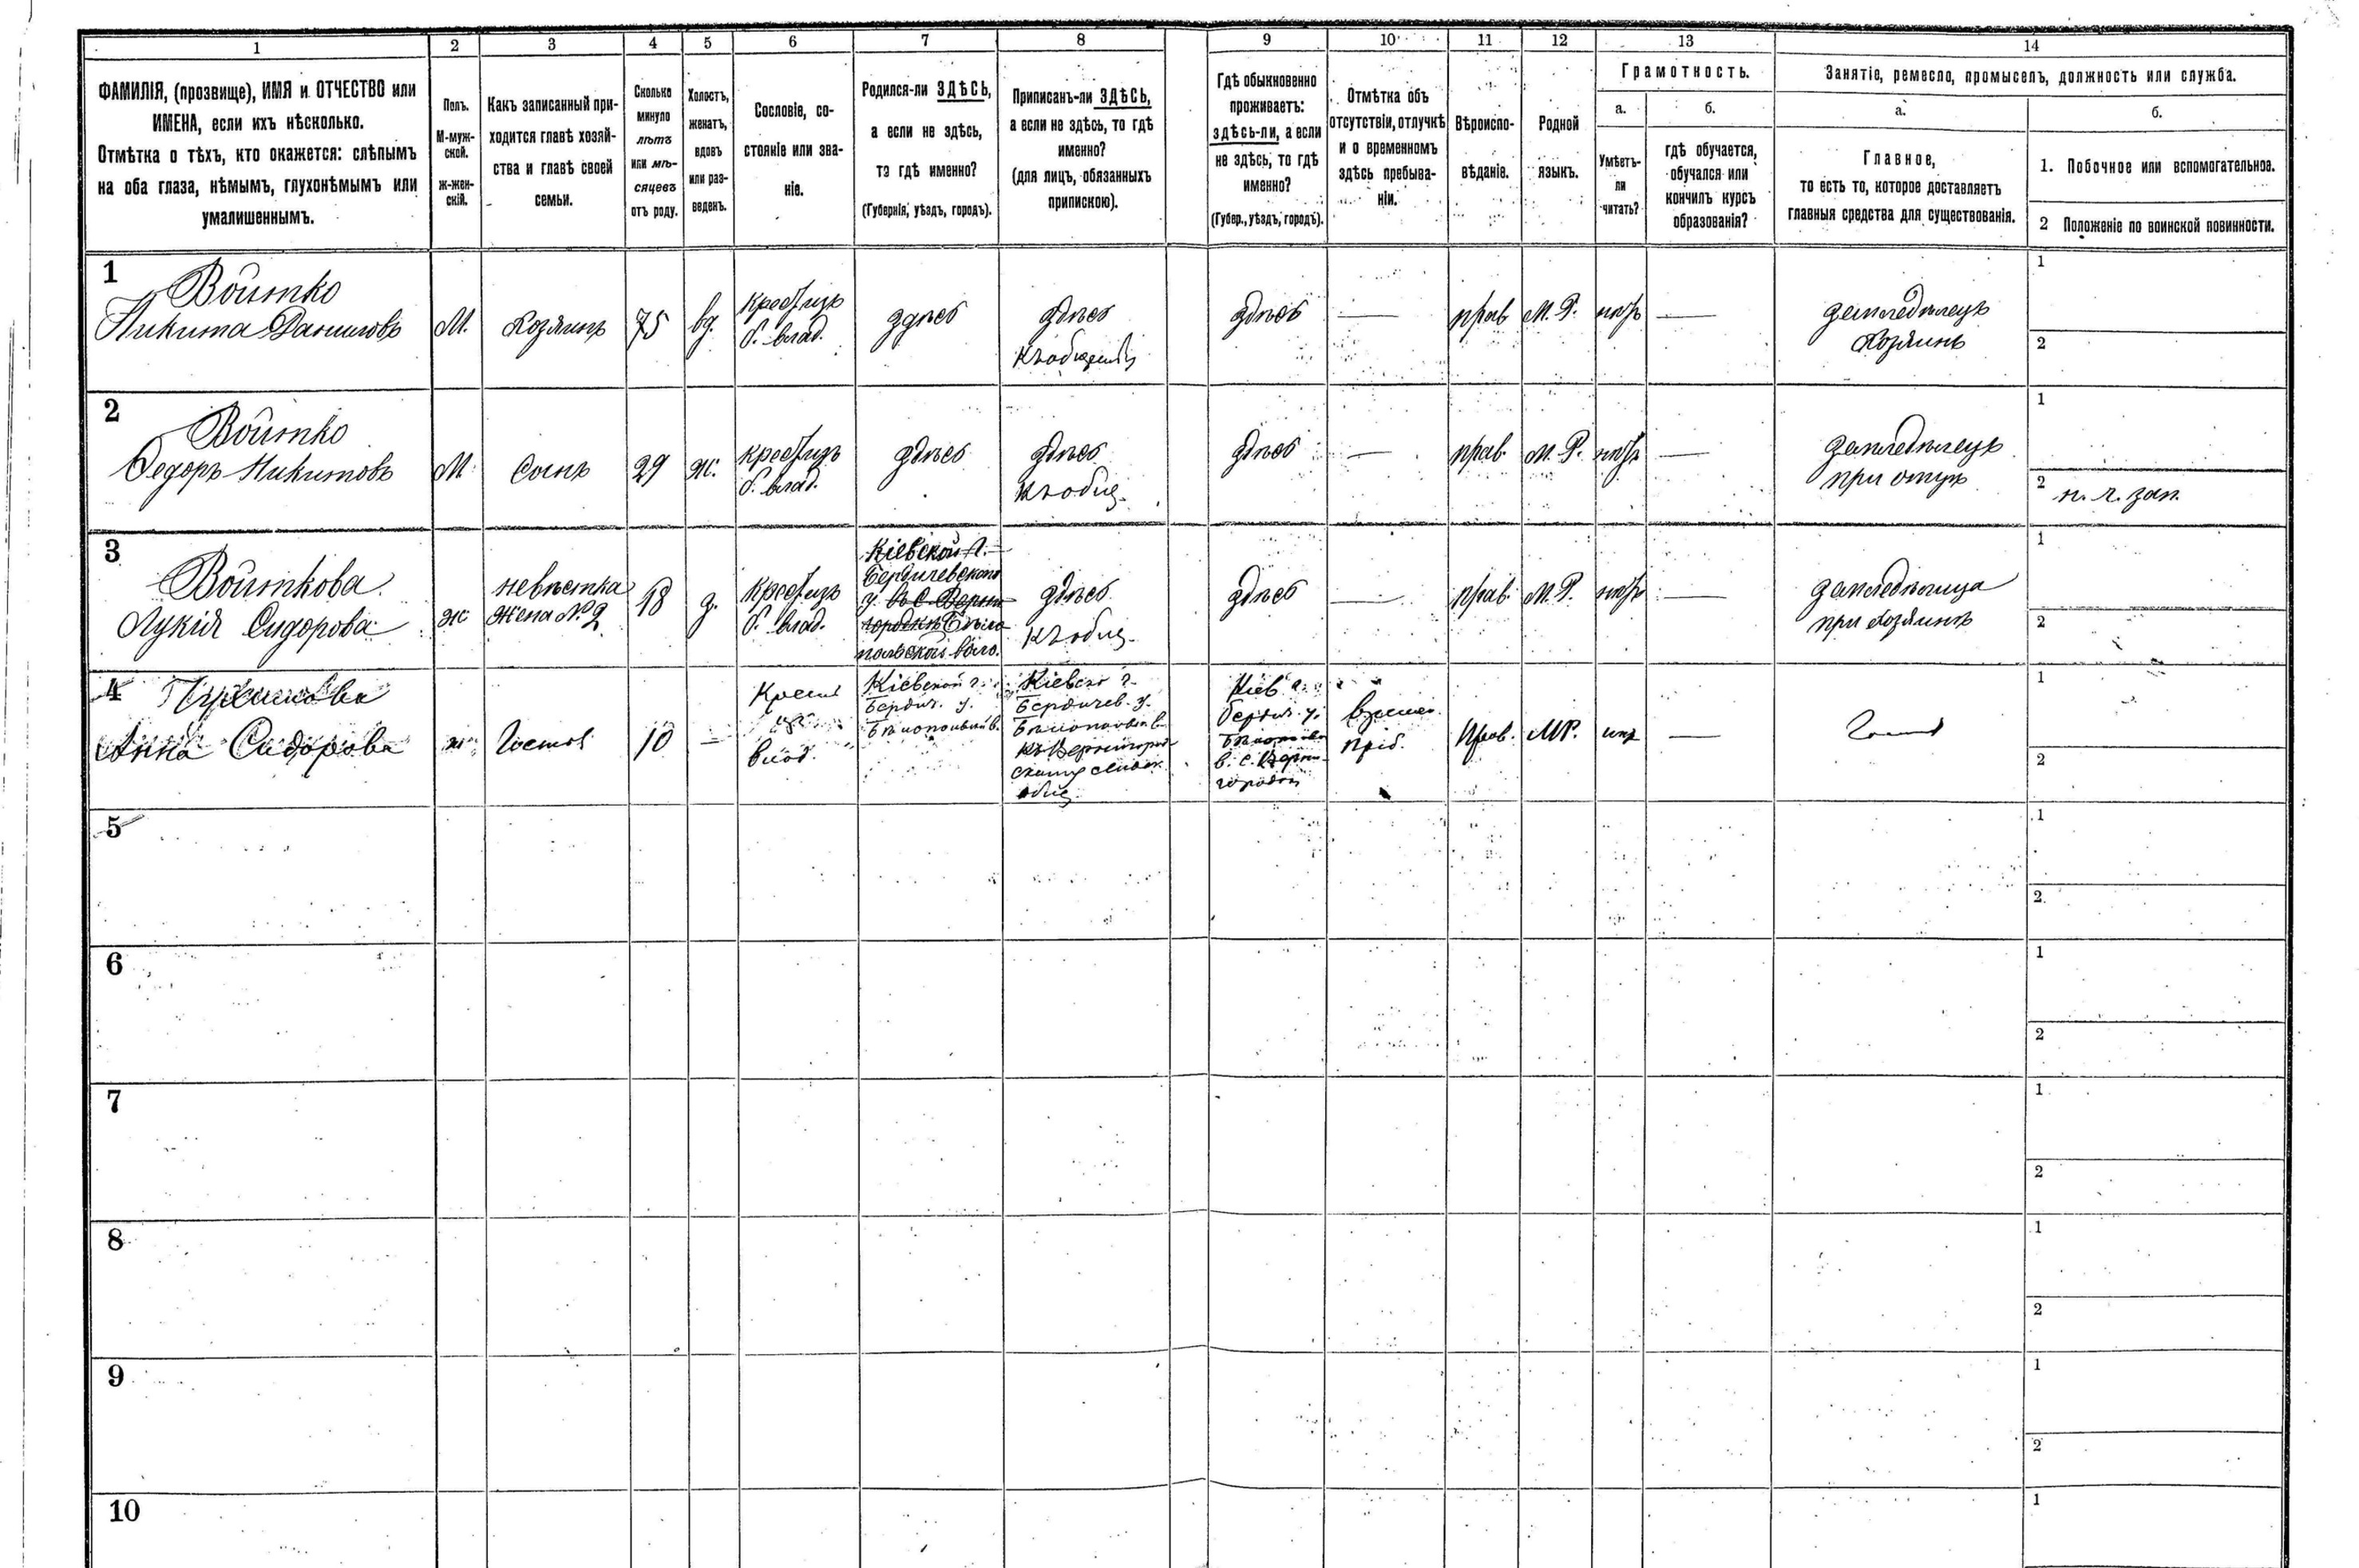 1
2
3
4
5
6
7
8
9
10
11
12
13
14
ФАМИЛІЯ, (прозвище), ИМЯ и ОТЧЕСТВО или
ИМЕНА, если ихъ нѣсколько.
Отмѣтка о тѣхъ, кто окажется: слѣпымъ
на оба глаза, нѣмымъ, глухонѣмымъ или
умалишеннымъ.
Полъ.
М-муж-
ской.
ж-жен-
скій.
Какъ записанный при-
ходится главѣ хозяй-
ства и главѣ своей
семьи.
Сколько
минуло
лѣтъ
или мѣ-
сяцевъ
отъ роду.
Холостъ,
женатъ,
вдовъ
или раз-
веденъ.
Сословіе, со-
стояніе или зва-
ніе.
Родился-ли ЗДѢСЬ,
а если не здѣсь,
то гдѣ именно?
(Губернія, уѣздъ, городъ).
Приписанъ-ли ЗДѢСЬ,
а если не здѣсь, то гдѣ
именно?
(для лицъ, обязанныхъ
припискою).
Гдѣ обыкновенно
проживаетъ:
здѣсь-ли, а если
не здѣсь, то гдѣ
именно?
(Губер., уѣздъ, городъ).
Отмѣтка объ
отсутствіи, отлучкѣ
и о временномъ
здѣсь пребыва-
ніи.
Вѣроиспо-
вѣданіе.
Родной
языкъ.
Грамотность.
а.
Умѣетъ-
ли
читать?
б.
гдѣ обучается,
обучался или
кончилъ курсъ
образованія?
Занятіе, ремесло, промыселъ, должность или служба.
а.
Главное,
то есть то, которое доставляетъ
главныя средства для существованія.
б.
1. Побочное или вспомогательное.
2 Положеніе по воинской повинности.
1
Войтко
Никита Даниловъ
М.
Хозяинъ
75
вд.
б. влад.
здѣсь
здѣсь
здѣсь
—
прав
М. Р.
нѣтъ
—
земледѣлецъ
Хозяинъ
1
2
2
Войтко
Федоръ Никитовъ
М
Сынъ
29
ж.
б. влад.
здѣсь
здѣсь
къ общ.
здѣсь
—
прав.
М. Р.
нѣтъ
—
земледѣлецъ
при отцѣ
1
2
3
Войткова
Лукія Сидорова
ж
невѣстка
жена № 2
18
з.
б. влад.
Кіевской г.
Бердичевскаго
у.
здѣсь
къ общ.
здѣсь
—
прав.
М. Р.
нѣтъ
—
при Хозяинѣ
1
2
4
Анна Сидорова
ж
Гостья
10
—
Крест
из
влад.
Кіевской г.
Бердич. у.
Кіевско г.
Бердичев. у.
общ.
Кіев г.
Бердич. у.
времен.
преб.
Прав.
МР.
нѣтъ
—
1
2
5
1
2
6
1
2
7
1
2
8
1
2
9
1
2
10
1